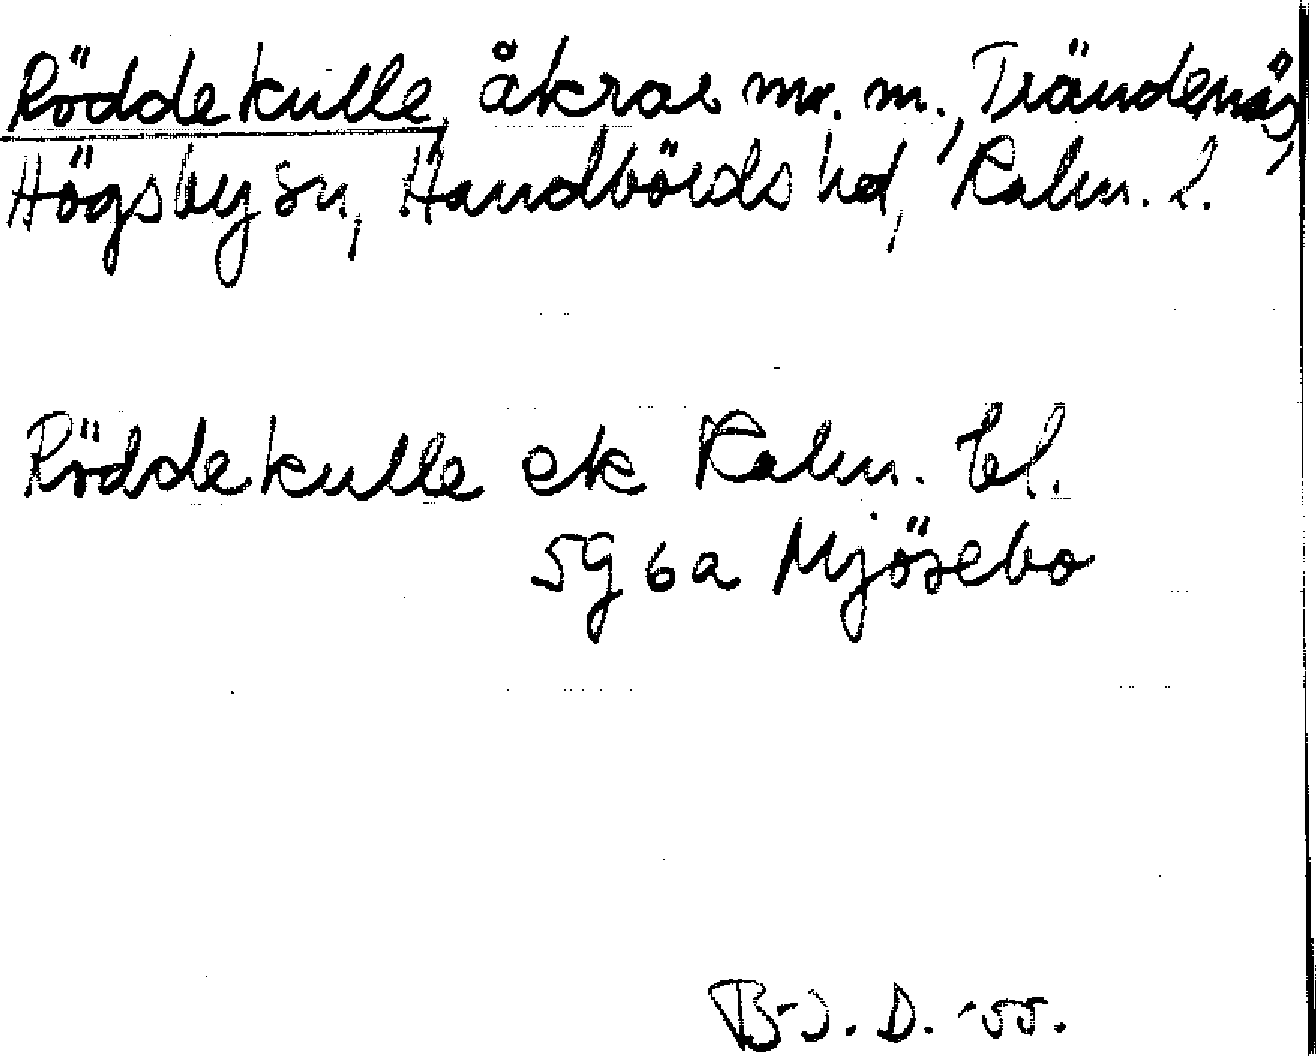 Röddekulle, åkrar m. m., Trändenäs,
Högsby sn, Handbörds hd, Kalm. l.
Röddekulle ek Kalm. bl.
5g 6a Mjösebo
B-J. D. -55.